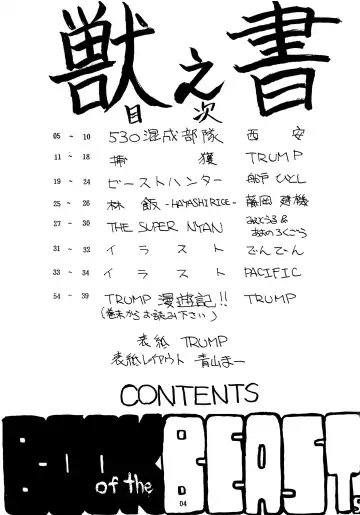 獣之書
目次
05 ~ 10 530混成部隊 西安
11 ~ 18 捕獲 TRUMP
19 ~ 24 ビーストハンター 船戸ひとし
25 ~ 26 林飯 -HAYASHI RICE- 藤岡建機
27 ~ 30 THE SUPER NYAN みとうる & あおのろくごう
31 ~ 32 イラスト でんでーん
33 ~ 34 イラスト PACIFIC
54 ~ 39 TRUMP 漫遊記!! TRUMP
(巻末からお読み下さい)
表紙 TRUMP
表紙レイアウト 青山まー
CONTENTS
BOOK of the BEAST
04